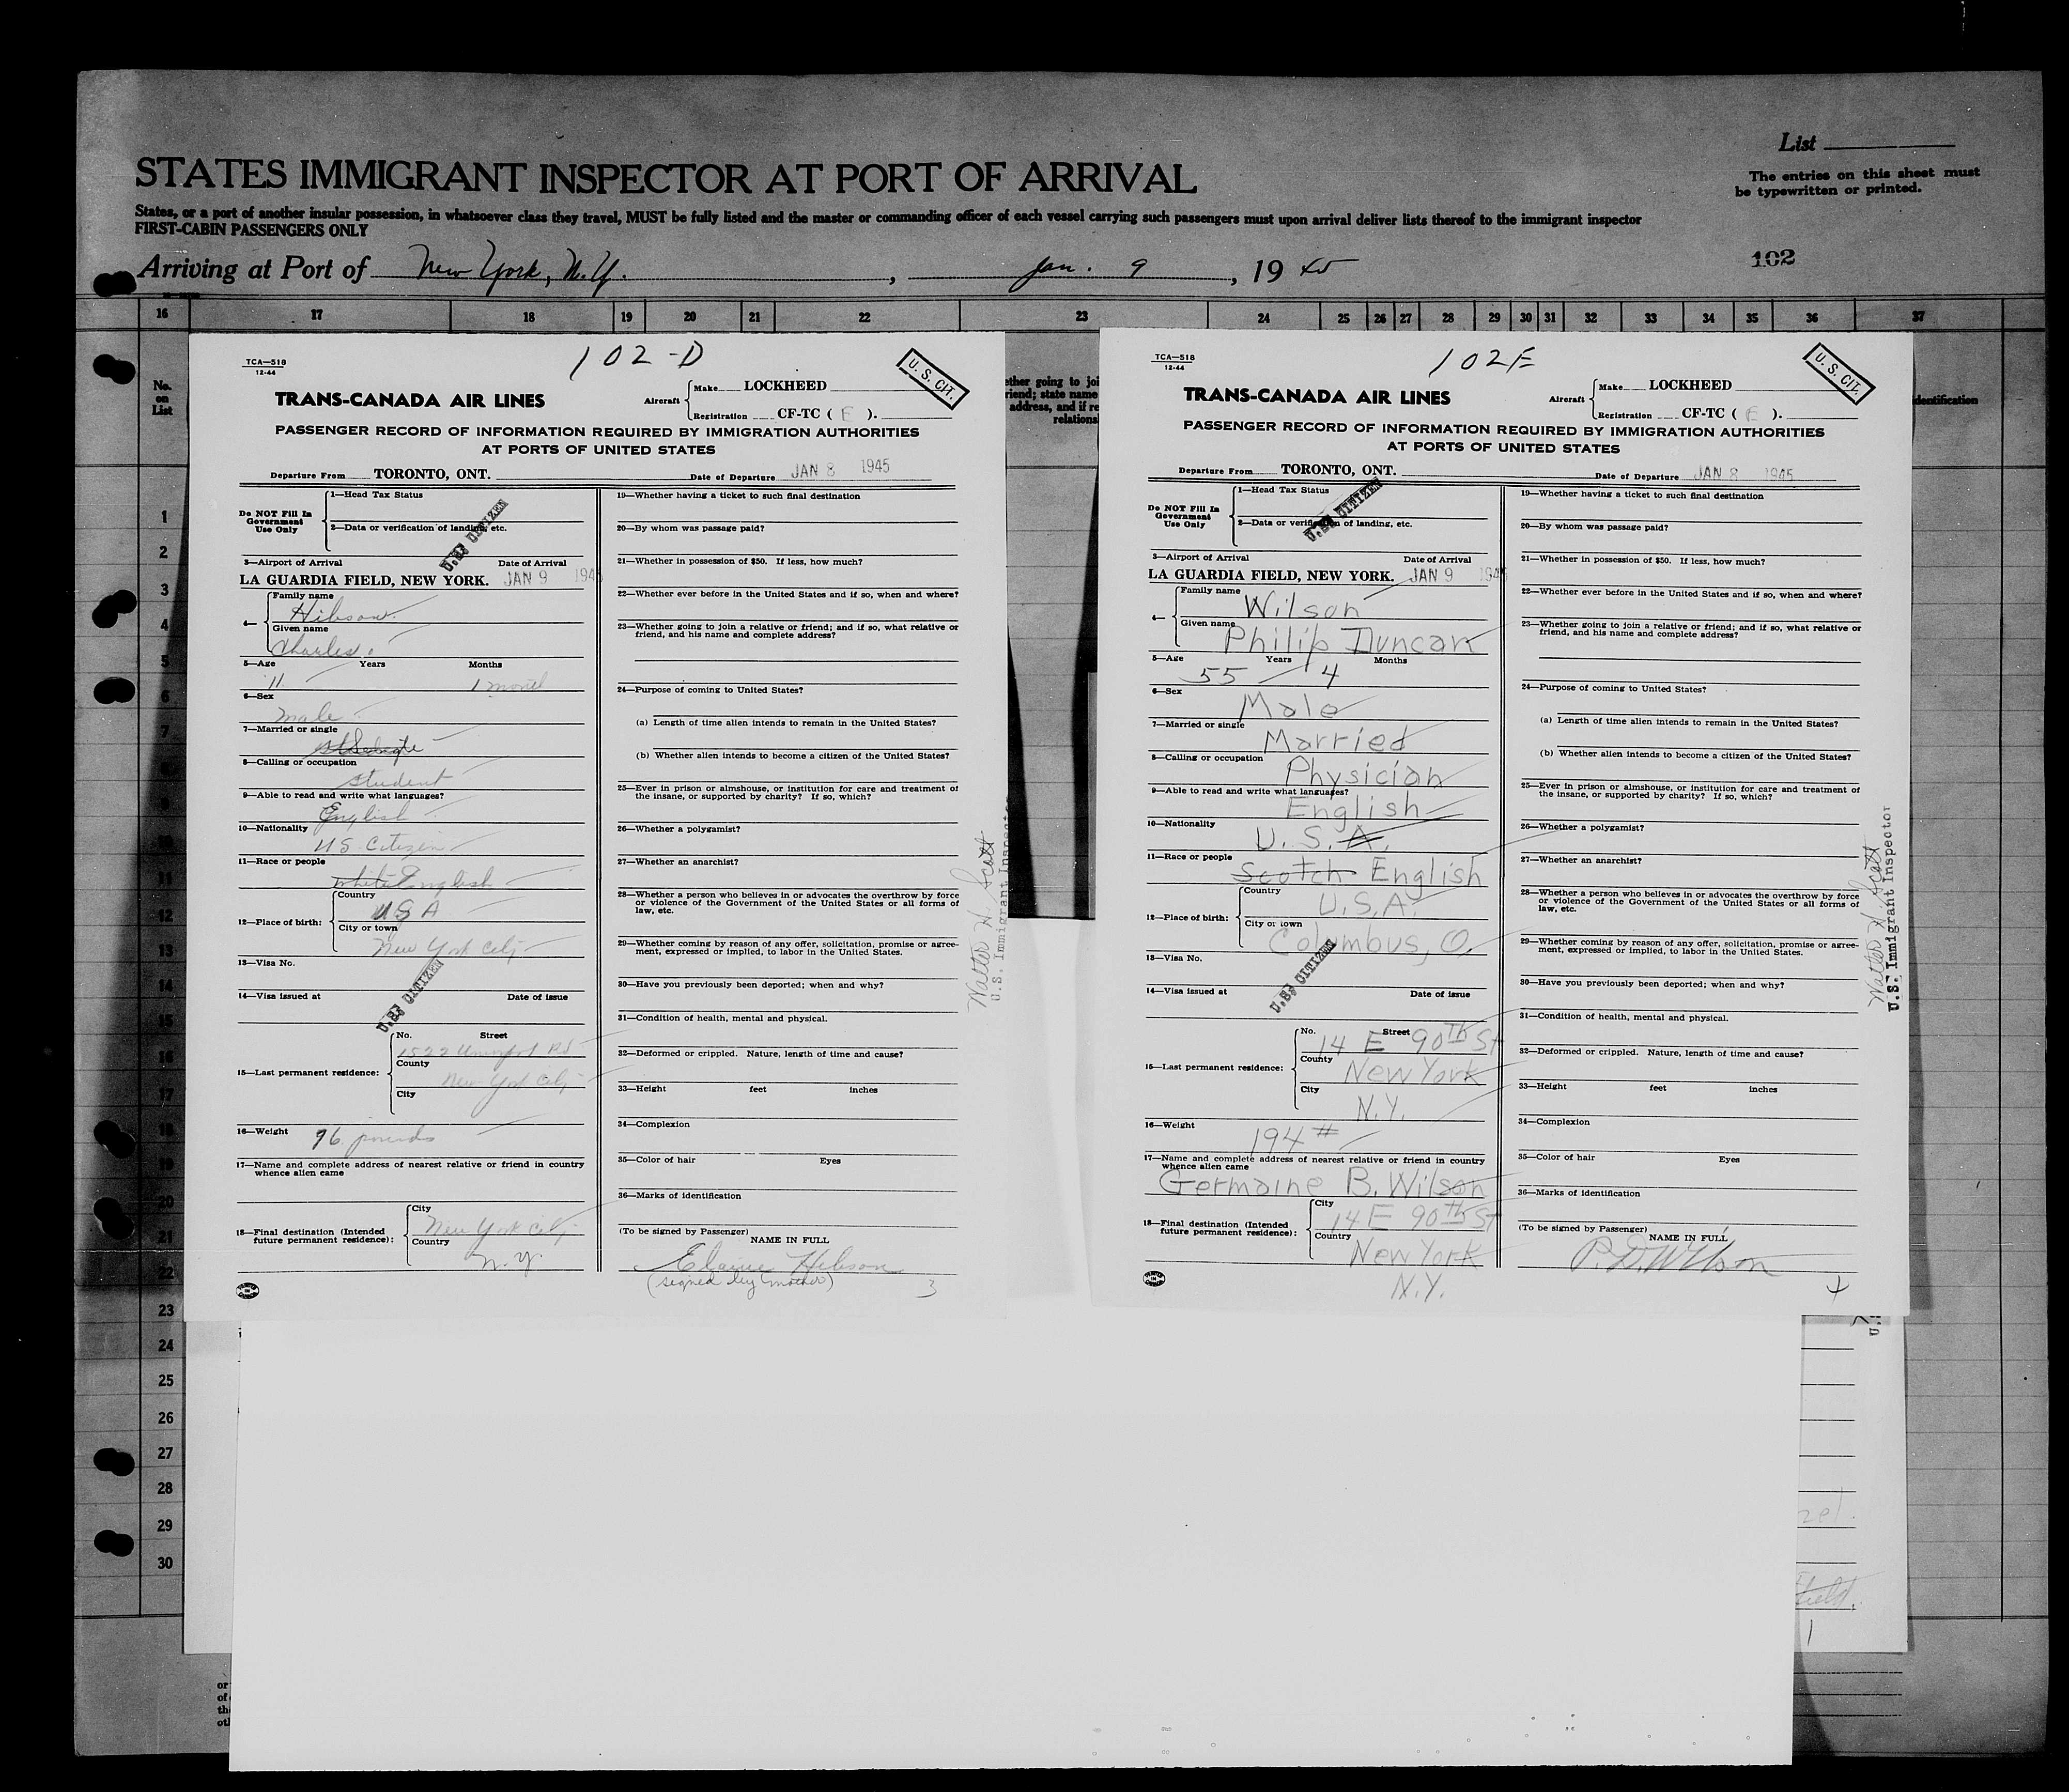 List
STATES IMMIGRANT INSPECTOR AT PORT OF ARRIVAL
The entries on this sheet must
be typewritten or printed.
States, or a port of another insular possession, in whatsoever class they travel, MUST be fully listed and the master or commanding officer of each vessel carrying such passengers must upon arrival deliver lists thereof to the immigrant inspector
FIRST-CABIN PASSENGERS ONLY
102
Arriving at Port of New York, N.Y., Jan. 9, 19 45
16 17 18 19 20 21 22 23 24 25 26 27 28 29 30 31 32 33 34 35 36 37
No.
on
List
1
2
3
4
5
6
7
9
10
11
12
13
14
15
16
17
18
19
20
21
22
23
24
25
26
27
28
29
30
102-D
TCA—518
12-44
U. S. CIT.
TRANS-CANADA AIR LINES
Aircraft
Make LOCKHEED
Registration CF-TC ( E ).
PASSENGER RECORD OF INFORMATION REQUIRED BY IMMIGRATION AUTHORITIES
AT PORTS OF UNITED STATES
Departure From TORONTO, ONT. Date of Departure JAN 8 1945
Do NOT Fill In
Government
Use Only
1—Head Tax Status
2—Data or verification of landing, etc.
U.S. CITIZEN
3—Airport of Arrival Date of Arrival
LA GUARDIA FIELD, NEW YORK. JAN 9 1945
4—
Family name
Hibson
Given name
Charles
5—Age Years Months
11 1 month
6—Sex
male
7—Married or single
Single
8—Calling or occupation
student
9—Able to read and write what languages?
English
10—Nationality
US Citizen
11—Race or people
white English
12—Place of birth:
Country
USA
City or town
New York City
13—Visa No.
U.S. CITIZEN
14—Visa issued at Date of issue
15—Last permanent residence:
No. Street
1522
County
New York City
City
16—Weight 96 pounds
17—Name and complete address of nearest relative or friend in country
whence alien came
18—Final destination (Intended
future permanent residence):
City
New York City
Country
N.Y.
19—Whether having a ticket to such final destination
20—By whom was passage paid?
21—Whether in possession of $50. If less, how much?
22—Whether ever before in the United States and if so, when and where?
23—Whether going to join a relative or friend; and if so, what relative or
friend, and his name and complete address?
24—Purpose of coming to United States?
(a) Length of time alien intends to remain in the United States?
(b) Whether alien intends to become a citizen of the United States?
25—Ever in prison or almshouse, or institution for care and treatment of
the insane, or supported by charity? If so, which?
26—Whether a polygamist?
27—Whether an anarchist?
28—Whether a person who believes in or advocates the overthrow by force
or violence of the Government of the United States or all forms of
law, etc.
29—Whether coming by reason of any offer, solicitation, promise or agree-
ment, expressed or implied, to labor in the United States.
30—Have you previously been deported; when and why?
31—Condition of health, mental and physical.
32—Deformed or crippled. Nature, length of time and cause?
33—Height feet inches
34—Complexion
35—Color of hair Eyes
36—Marks of identification
(To be signed by Passenger)
NAME IN FULL
Elaine Hibson
(signed by mother)
3
Walter H. Scott
U.S. Immigrant Inspector
ether going to joi
riend; state name
address, and if re
relations
102E
TCA—518
12-44
U. S. CIT.
TRANS-CANADA AIR LINES
Aircraft
Make LOCKHEED
Registration CF-TC ( E ).
PASSENGER RECORD OF INFORMATION REQUIRED BY IMMIGRATION AUTHORITIES
AT PORTS OF UNITED STATES
Departure From TORONTO, ONT. Date of Departure JAN 8 1945
Do NOT Fill In
Government
Use Only
1—Head Tax Status
2—Data or verification of landing, etc.
U.S. CITIZEN
3—Airport of Arrival Date of Arrival
LA GUARDIA FIELD, NEW YORK. JAN 9 1945
4—
Family name
Wilson
Given name
Philip Duncan
5—Age Years Months
55 4
6—Sex
Male
7—Married or single
Married
8—Calling or occupation
Physician
9—Able to read and write what languages?
English
10—Nationality
U.S.A.
11—Race or people
Scotch English
12—Place of birth:
Country
U.S.A.
City or town
Columbus, O.
13—Visa No.
U.S. CITIZEN
14—Visa issued at Date of issue
15—Last permanent residence:
No. Street
14 E 90TH St
County
New York
City
N.Y.
16—Weight
194#
17—Name and complete address of nearest relative or friend in country
whence alien came
Germaine B. Wilson
18—Final destination (Intended
future permanent residence):
City
14 E 90TH St
Country
New York
N.Y.
19—Whether having a ticket to such final destination
20—By whom was passage paid?
21—Whether in possession of $50. If less, how much?
22—Whether ever before in the United States and if so, when and where?
23—Whether going to join a relative or friend; and if so, what relative or
friend, and his name and complete address?
24—Purpose of coming to United States?
(a) Length of time alien intends to remain in the United States?
(b) Whether alien intends to become a citizen of the United States?
25—Ever in prison or almshouse, or institution for care and treatment of
the insane, or supported by charity? If so, which?
26—Whether a polygamist?
27—Whether an anarchist?
28—Whether a person who believes in or advocates the overthrow by force
or violence of the Government of the United States or all forms of
law, etc.
29—Whether coming by reason of any offer, solicitation, promise or agree-
ment, expressed or implied, to labor in the United States.
30—Have you previously been deported; when and why?
31—Condition of health, mental and physical.
32—Deformed or crippled. Nature, length of time and cause?
33—Height feet inches
34—Complexion
35—Color of hair Eyes
36—Marks of identification
(To be signed by Passenger)
NAME IN FULL
P.D. Wilson
4
Walter H. Scott
U.S. Immigrant Inspector
dentification